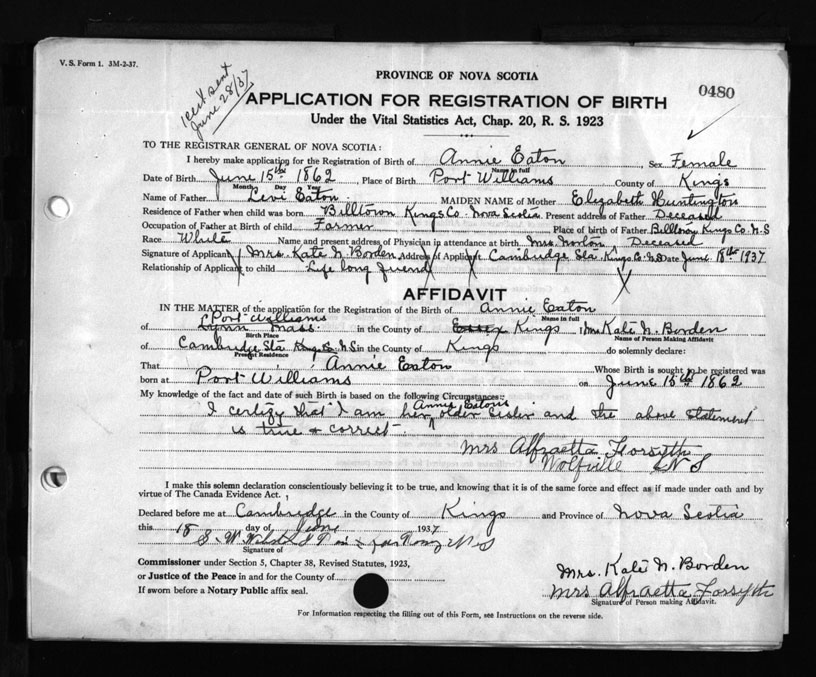 V. S. Form 1. 3M-2-37.
1 cert sent
June 28/37
PROVINCE OF NOVA SCOTIA
0480
APPLICATION FOR REGISTRATION OF BIRTH
Under the Vital Statistics Act, Chap. 20, R. S. 1923
TO THE REGISTRAR GENERAL OF NOVA SCOTIA:
I hereby make application for the Registration of Birth of Annie Eaton Sex Female
Name in full
Date of Birth June 15th 1862, Place of Birth Port Williams County of Kings
Month Day Year
Name of Father Levi Eaton MAIDEN NAME of Mother Elizabeth Huntington
Residence of Father when child was born Billtown Kings Co. Nova Scotia Present address of Father Deceased
Occupation of Father at Birth of child Farmer Place of birth of Father Billtown Kings Co. N.S
Race White Name and present address of Physician in attendance at birth Mrs. Deceased
Signature of Applicant Mrs. Kate N. Borden Address of Applicant Cambridge Sta. Kings Co. N.S Date June 18th 1937
Relationship of Applicant to child Life long friend
AFFIDAVIT
IN THE MATTER of the application for the Registration of the Birth of Annie Eaton
Name in full
Port Williams
of Lynn Mass. in the County of Essex Kings I, Mrs Kate N. Borden
Birth Place Name of Person Making Affidavit
of Cambridge Sta Kings Co. N.S in the County of Kings do solemnly declare:
Present Residence
That Annie Eaton Whose Birth is sought to be registered was
born at Port Williams on June 15th 1862
My knowledge of the fact and date of such Birth is based on the following Circumstances:
Annie Eatons
I certify that I am her older sister and the above statement
is true & correct.
Mrs Alfraetta Forsyth
Wolfville N S
I make this solemn declaration conscientiously believing it to be true, and knowing that it is of the same force and effect as if made under oath and by
virtue of The Canada Evidence Act.
Declared before me at Cambridge in the County of Kings and Province of Nova Scotia
this 18 day of June 1937
S. W.
Signature of
Commissioner under Section 5, Chapter 38, Revised Statutes, 1923,
or Justice of the Peace in and for the County of
If sworn before a Notary Public affix seal.
Mrs. Kate N. Borden
Mrs Alfraetta Forsyth
Signature of Person making Affidavit.
For Information respecting the filling out of this Form, see Instructions on the reverse side.